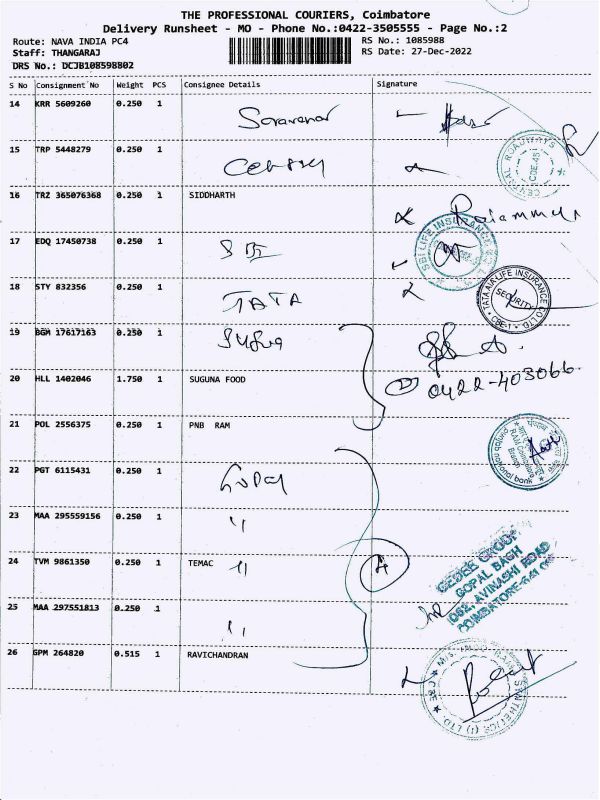 THE PROFESSIONAL COURIERS, Coimbatore
Delivery Runsheet - MO - Phone No.:0422-3505555 - Page No.:2
Route: NAVA INDIA PC4 RS No.: 1085988
Staff: THANGARAJ RS Date: 27-Dec-2022
DRS No.: DCJB108598802
S No Consignment No Weight PCS Consignee Details Signature
14 KRR 5609260 0.250 1 Saravanan
15 TRP 5448279 0.250 1 Century
CENTRAL ROADWAYS
16 TRZ 365076368 0.250 1 SIDDHARTH
SBI LIFE INSURANCE
17 EDQ 17450738 0.250 1 SBI
18 STY 832356 0.250 1 TATA
TATA AIA LIFE INSURANCE CO LTD
SECURITY
CBE-1
19 BGM 17617163 0.250 1
20 HLL 1402046 1.750 1 SUGUNA FOOD
0422-403066
21 POL 2556375 0.250 1 PNB RAM
national bank
22 PGT 6115431 0.250 1 Gopal
23 MAA 295559156 0.250 1 "
24 TVM 9861350 0.250 1 TEMAC "
4
GEDEE GROUP
GOPAL BAGH
1062, AVINASHI ROAD
COIMBATORE-641
25 MAA 297551813 0.250 1 "
26 GPM 264820 0.515 1 RAVICHANDRAN